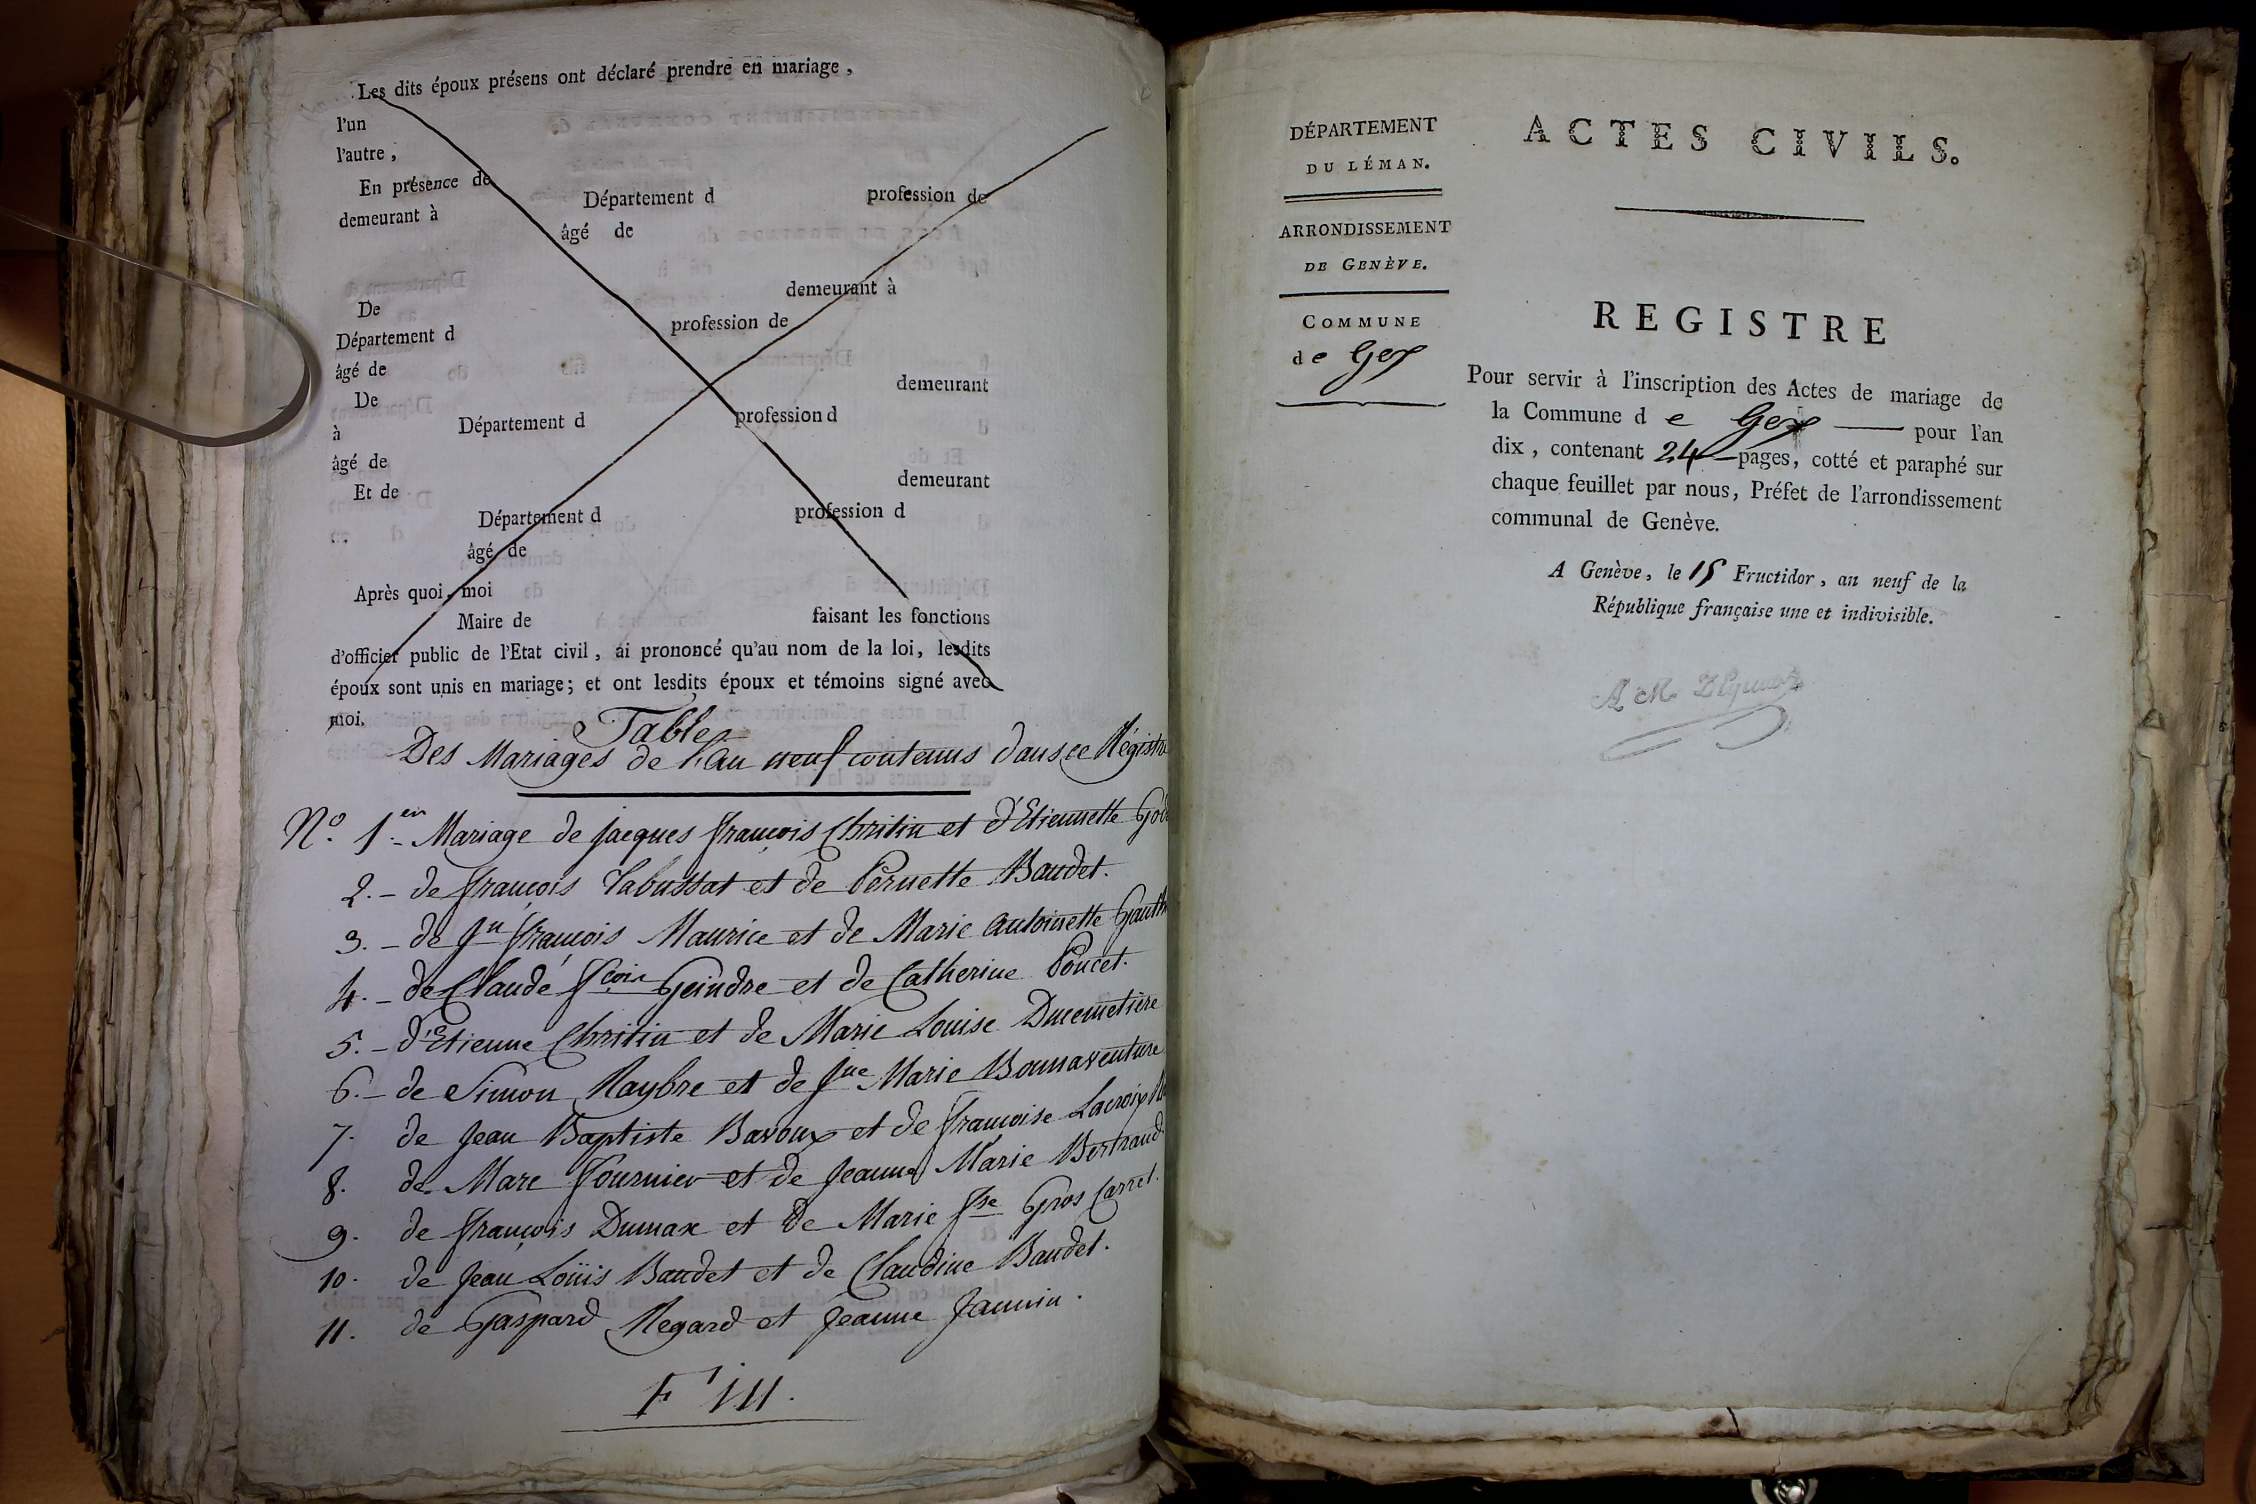 Les dits époux présens ont déclaré prendre en mariage,
l'un
l'autre,
En présence de
demeurant à Département d profession de
âgé de
De demeurant à
Département d profession de
âgé de
De demeurant
à Département d profession d
âgé de
Et de demeurant
Département d profession d
âgé de
Après quoi, moi
Maire de faisant les fonctions
d'officier public de l'Etat civil, ai prononcé qu'au nom de la loi, lesdits
époux sont unis en mariage; et ont lesdits époux et témoins signé avec
moi.
Table
Des Mariages de l'an neuf contenus dans ce Régistre
N.o 1.er - Mariage de Jacques François Chritin et d'Etiennette
2. - de François et de Pernette Baudet.
3. - de Jn François Maurice et de Marie Antoinette
4. - de Claude Fcois Geindre et de Catherine Poncet.
5. - d'Etienne Chritin et de Marie Louise Ducimetière
6. - de Simon Raybre et de Jne Marie Bonnaventure
7. de Jean Baptiste Bavoux et de Françoise Lacroix
8. de Marc Fournier et de Jeanne Marie Bertrand
9. de François Dumax et de Marie Fse Gros Carret.
10. de Jean Loüis Baudet et de Claudine Baudet.
11. de Gaspard Regard et Jeanne Jannin.
DÉPARTEMENT
DU LÉMAN.
ARRONDISSEMENT
DE GENÈVE.
COMMUNE
de Gex
ACTES CIVILS.
REGISTRE
Pour servir à l'inscription des Actes de mariage de
la Commune d e Gex pour l'an
dix, contenant 24 pages, cotté et paraphé sur
chaque feuillet par nous, Préfet de l'arrondissement
communal de Genève.
A Genève, le 15 Fructidor, an neuf de la
République française une et indivisible.